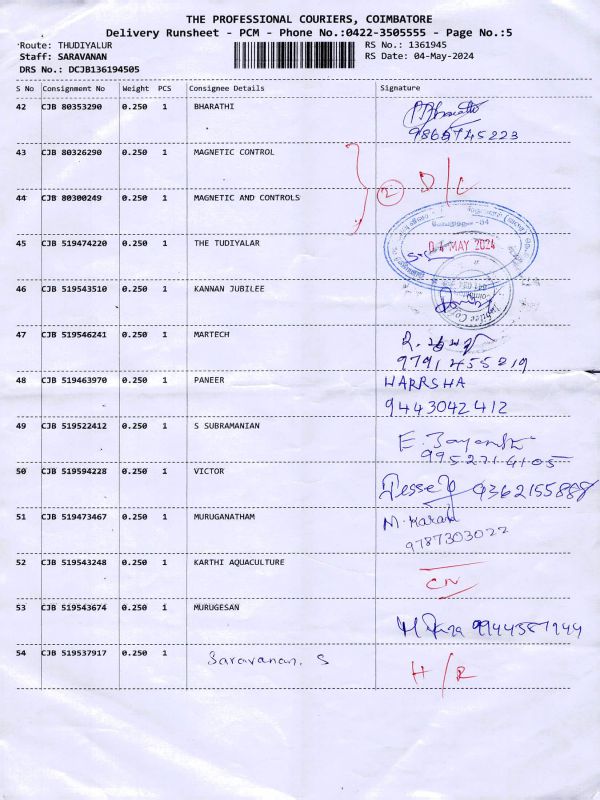 THE PROFESSIONAL COURIERS, COIMBATORE
Delivery Runsheet - PCM - Phone No.:0422-3505555 - Page No.:5
Route: THUDIYALUR
RS No.: 1361945
Staff: SARAVANAN
RS Date: 04-May-2024
DRS No.: DCJB136194505
S No Consignment No Weight PCS Consignee Details Signature
42 CJB 80353290 0.250 1 BHARATHI
9865745223
43 CJB 80326290 0.250 1 MAGNETIC CONTROL
2 D/C
44 CJB 80300249 0.250 1 MAGNETIC AND CONTROLS
45 CJB 519474220 0.250 1 THE TUDIYALAR
04 MAY 2024
46 CJB 519543510 0.250 1 KANNAN JUBILEE
47 CJB 519546241 0.250 1 MARTECH
9791455819
48 CJB 519463970 0.250 1 PANEER HARRSHA
9443042412
49 CJB 519522412 0.250 1 S SUBRAMANIAN
50 CJB 519594228 0.250 1 VICTOR 9362155888
51 CJB 519473467 0.250 1 MURUGANATHAM
9787303022
52 CJB 519543248 0.250 1 KARTHI AQUACULTURE
CN
53 CJB 519543674 0.250 1 MURUGESAN
54 CJB 519537917 0.250 1 Saravanan. S
H/R